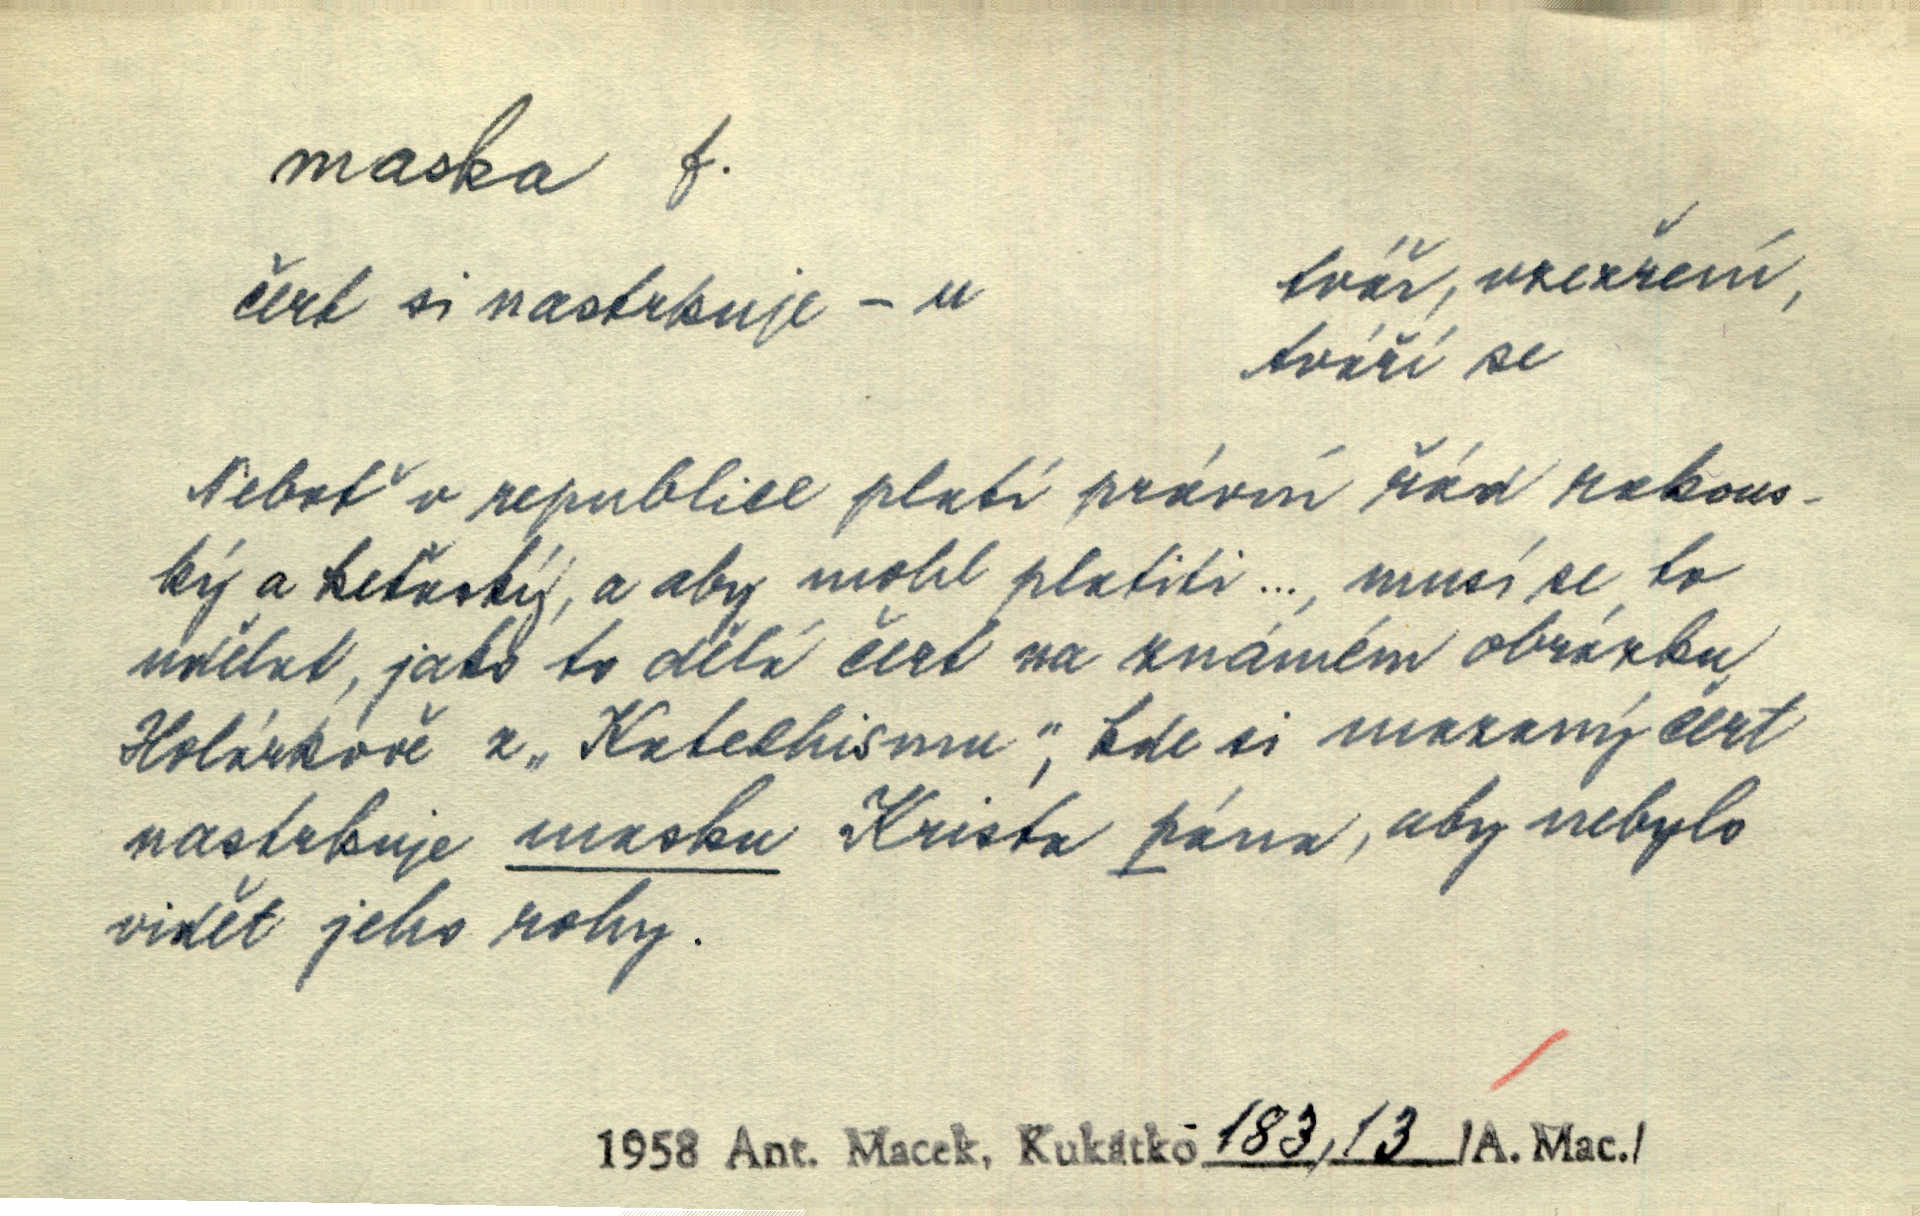 maska f.
čert si nastrkuje – u
tvář, vzezření,
tváří se
Neboť v republice platí právní řád rakous-
ký a keťaský, a aby mohl platiti ..., musí se to
udělat, jako to dělá čert na známém obrázku
Holárkově z „Katechismu", kde si mazaný čert
nastrkuje masku Krista pána, aby nebylo
vidět jeho rohy.
1958 Ant. Macek, Kukátko 183,13 /A. Mac./